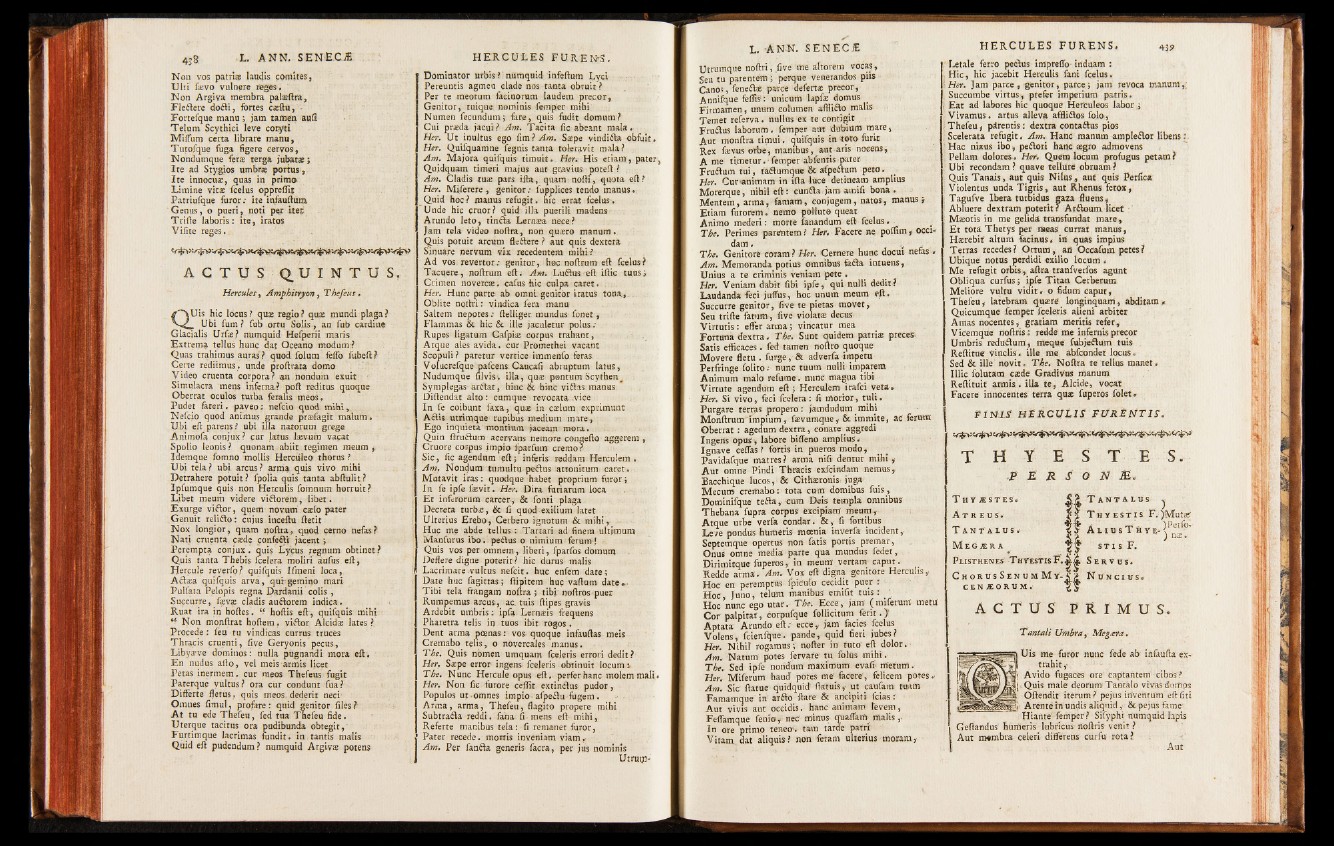 438 L. ANN. SENECÆ
Non vos patriæ laudis comites,
Ulti ſævo vulnere reges.
Non Argiva membra palæſtra,
Flectere docti, fortes cæſtu,
Forteſque manu; jam tamen auſi
Telum Scythici leve coryti
Miſſum certa librare manu,
Tutoſque fuga figere cervos,
Nondumque feræ terga jubatæ;
Ite ad Stygios umbræ portus,
Ite innocuæ, quas in primo
Limine vitæ ſcelus oppreſſit
Patriuſque furor: ite infauſtum
Genus, o pueri, noti per iter
Triſte laboris: ite, iratos
Viſite reges.
ACTUS QUINTUS.
Hercules, Amphitryon, Theſeus.
QUis hic locus? quæ regio? quæ mundi plaga?
Ubi ſum? ſub ortu Solis, an ſub cardine
Glacialis Urſæ? numquid Heſperii maris
Extrema tellus hunc dat Oceano modum?
Quas trahimus auras? quod ſolum feſſo ſubeſt?
Certe rediimus. unde proſtrata domo
Video cruenta corpora? an nondum exuit
Simulacra mens inferna? poſt reditus quoque
Oberrat oculos turba feralis meos.
Pudet fateri. paveo: neſcio quod mihi,
Neſcio quod animus grande præſagit malum.
Ubi eſt parens? ubi illa natorum grege
Animoſa conjux? cur latus lævum vacat
Spolio leonis? quonam abiit regimen meum,
Idemque ſomno mollis Herculeo thorus?
Ubi tela? ubi arcus? arma quis vivo mihi
Detrahere potuit? ſpolia quis tanta abſtulit?
Ipſumque quis non Herculis ſomnum horruit?
Libet meum videre victorem, libet.
Exurge victor, quem novum cælo pater
Genuit relicto: cujus inceſtu ſtetit
Nox longior, quam noſtra, quod cerno nefas?
Nati cruenta cæde confecti jacent;
Perempta conjux. quis Lycus regnum obtinet?
Quis tanta Thebis ſcelera moliri auſus eſt,
Hercule reverſo? quiſquis Iſmeni loca,
Actæa quiſquis arva, qui gemino mari
Pulſata Pelopis regna Dardanii colis,
Succurre, ſævæ cladis auctorem indica.
Ruat ira in hoſtes. " hoſtis eſt, quiſquis mihi
" Non monſtrat hoſtem. victor Alcidæ lates?
Procede: ſeu tu vindicas currus truces
Thracis cruenti, ſive Geryonis pecus,
Libyæve dominos: nulla pugnandi mora eſt.
En nudus aſto, vel meis armis licet
Petas inermem. cur meos Theſeus fugit
Paterque vultus? ora cur condunt ſua?
Differte fletus, quis meos dederit neci
Omnes ſimul, profare: quid genitor ſiles?
At tu ede Theſeu, ſed tua Theſeu fide.
Uterque tacitus ora pudibunda obtegit,
Furtimque lacrimas fundit. in tantis malis
Quid eſt pudendum? numquid Argivæ potens
HERCULES FURENS.
Dominator urbis? numquid infeſtum Lyci
Pereuntis agmen clade nos tanta obruit?
Per te meorum facinorum laudem precor,
Genitor, tuique nominis ſemper mihi
Numen ſecundum; fare, quis fudit domum?
Cui præda jacui? Am. Tacita ſic abeant mala.
Her. Ut inultus ego ſim? Am. Sæpe vindicta obfuit.
Her. Quiſquamne ſegnis tanta toleravit mala?
Am. Majora quiſquis timuit. Her. His etiam, pater,
Quidquam timeri majus aut gravius poteſt?
Am. Cladis tuæ pars iſta, quam noſti, quota eſt?
Her. Miſerere, genitor: ſupplices tendo manus.
Quid hoc? manus refugit. hic errat ſcelus.
Unde hic cruor? quid illa puerili madens
Arundo leto, tincta Lernæa nece?
Jam tela video noſtra, non quæro manum.
Quis potuit arcum flectere? aut quis dextera
Sinuare nervum vix recedentem mihi?
Ad vos revertor: genitor, hoc noſtrum eſt ſcelus?
Tacuere, noſtrum eſt. Am. Luctus eſt iſtic tuus;
Crimen novercæ. caſus hic culpa caret.
Her. Hunc parte ab omni genitor iratus tona,
Oblite noſtri: vindica ſera manu
Saltem nepotes: ſtelliger mundus ſonet,
Flammas & hic & ille jaculetur polus:
Rupes ligatum Caſpiæ corpus trahant,
Atque ales avida. cur Promethei vacant
Scopuli? paretur vertice immenſo feras
Volucreſque paſcens Caucaſi abruptum latus,
Nudumque ſilvis, illa, quæ pontum Scythen
Symplegas arctat, hinc & hinc victas manus
Diſtendat alto: cumque revocata vice
In ſe coibunt ſaxa, quæ in cælum exprimunt
Actis utrimque rupibus medium mare,
Ego inquieta montium jaceam mora.
Quin ſtructum acervans nemore congeſto aggerem,
Cruore corpus impio ſparſum cremo?
Sic, ſic agendum eſt; inferis reddam Herculem.
Am. Nondum tumultu pectus attonitum caret.
Mutavit iras: quodque habet proprium furor;
In ſe ipſe ſævit. Her. Dira furiarum loca
Et inferorum carcer, & ſonti plaga
Decreta turbæ, & ſi quod exilium latet
Ulterius Erebo, Cerbero ignotum & mihi,
Huc me abde tellus: Tartari ad finem ultimum
Manſurus ibo. pectus o nimium ferum!
Quis vos per omnem, liberi, ſparſos domum
Deflere digne poterit? hic durus malis
Lacrimare vultus neſcit. huc enſem date;
Date huc ſagittas; ſtipitem huc vaſtum date.
Tibi tela frangam noſtra; tibi noſtros puer
Rumpemus arcus, ac tuis ſtipes gravis
Ardebit umbris: ipſa Lernæis frequens
Pharetra telis in tuos ibit rogos.
Dent arma pœnas: vos quoque infauſtas meis
Cremabo telis, o novercales manus.
The. Quis nomen umquam ſceleris errori dedit?
Her. Sæpe error ingens ſceleris obtinuit locum.
The. Nunc Hercule opus eſt. perfer hanc molem mali.
Her. Non ſic furore ceſſit extinctus pudor,
Populos ut omnes impio aſpectu fugem.
Arma, arma, Theſeu, flagito propere mihi
Subtracta reddi. ſana ſi mens eſt mihi,
Referte manibus tela: ſi remanet furor,
Pater recede. mortis inveniam viam.
Am. Per ſancta generis ſacra, per jus nominis
Utrum-
L. ANN. SENECÆ
Utrumque noſtri, ſive me altorem vocas,
Seu tu parentem; perque venerandos piis
Canos, ſenectæ parce deſertæ precor,
Anniſque feſſis: unicum lapſæ domus
Firmamen, unum columen afflicto malis
Temet reſerva. nullus ex te contigit
Fructus laborum. ſemper aut dubium mare,
Aut monſtra timui. quiſquis in toto furit
Rex ſævus orbe, manibus, aut aris nocens,
A me timetur. ſemper abſentis pater
Fructum tui, tactumque & aſpectum peto.
Her. Cur animam in iſta luce detineam amplius
Morerque, nihil eſt: cuncta jam amiſi bona.
Mentem, arma, famam, conjugem, natos, manus;
Etiam furorem. nemo polluto queat
Animo mederi: morte ſanandum eſt ſcelus.
The. Perimes parentem? Her. Facere ne poſſim, occi-
dam.
The. Genitore coram? Her. Cernere hunc docui nefas.
Am. Memoranda potius omnibus facta intuens,
Unius a te criminis veniam pete.
Her. Veniam dabit ſibi ipſe, qui nulli dedit?
Laudanda feci juſſus, hoc unum meum eſt.
Succurre genitor, ſive te pietas movet,
Seu triſte fatum, ſive violatæ decus
Virtutis: effer arma; vincatur mea
Fortuna dextra. The. Sunt quidem patriæ preces
Satis efficaces. ſed tamen noſtro quoque
Movere fletu. ſurge, & adverſa impetu
Perfringe ſolito: nunc tuum nulli imparem
Animum malo reſume. nunc magna tibi
Virtute agendum eſt; Herculem iraſci veta.
Her. Si vivo, feci ſcelera: ſi morior, tuli.
Purgare terras propero: jamdudum mihi
Monſtrum impium, ſævumque, & immite, ac ferum
Oberrat: agedum dextra, conare aggredi
Ingens opus, labore biſſeno amplius.
Ignave ceſſas? fortis in pueros modo,
Pavidaſque matres? arma niſi dentur mihi,
Aut omne Pindi Thracis exſcindam nemus,
Bacchique lucos, & Cithæronis juga
Mecum cremabo: tota cum domibus ſuis,
Dominiſque tecta, cum Deis templa omnibus
Thebana ſupra corpus excipiam meum,
Atque urbe verſa condar. &, ſi fortibus
Leve pondus humeris mœnia inverſa incident,
Septemque opertus non ſatis portis premar,
Onus omne media parte qua mundus ſedet,
Dirimitque ſuperos, in meum vertam caput.
Redde arma. Am. Vox eſt digna genitore Herculis,
Hoc en peremptus ſpiculo cecidit puer:
Hoc, Juno, telum manibus emiſit tuis:
Hoc nunc ego utar. The. Ecce, jam (miſerum metu
Cor palpitat, corpuſque ſollicitum ferit.)
Aptata Arundo eſt: ecce, jam facies ſcelus
Volens, ſcienſque. pande, quid fieri jubes?
Her. Nihil rogamus; noſter in tuto eſt dolor.
Am. Natum potes ſervare tu ſolus mihi.
The. Sed ipſe nondum maximum evaſi metum.
Her. Miſerum haud potes me facere, felicem potes.
Am. Sic ſtatue quidquid ſtatuis, ut cauſam tuam
Famamque in arcto ſtare & ancipiti ſcias:
Aut vivis aut occidis. hanc animam levem,
Feſſamque ſenio, nec minus quaſſam malis,
In ore primo teneo. tam tarde patri
Vitam dat aliquis? non feram ulterius moram,
HERCULES FURENS. 439
Letale ferro pectus impreſſo induam:
Hic, hic jacebit Herculis ſani ſcelus.
Her. Jam parce, genitor, parce; jam revoca manum,
Succumbe virtus, prefer imperium patris.
Eat ad labores hic quoque Herculeos labor;
Vivamus. artus alleva afflictos ſolo,
Theſeu, parentis: dextra contactus pios
Scelerata refugit. Am. Hanc manum amplector libens:
Hac nixus ibo, pectori hanc ægro admovens
Pellam dolores. Her. Quem locum profugus petam?
Ubi recondam? quave tellure obruam?
Quis Tanais, aut quis Nilus, aut quis Perſica
Violentus unda Tigris, aut Rhenus ferox,
Taguſve Ibera turbidus gaza fluens,
Abluere dextram poterit? Arctoum licet
Mæotis in me gelida transfundat mare,
Et tota Thetys per meas currat manus,
Hærebit altum facinus. in quas impius
Terras recedes? Ortum, an Occaſum petes?
Ubique notus perdidi exilio locum.
Me refugit orbis, aſtra tranſverſos agunt
Obliqua curſus; ipſe Titan Cerberum
Meliore vultu vidit. o fidum caput,
Theſeu, latebram quære longinquam, abditam.
Quicumque ſemper ſceleris alieni arbiter
Amas nocentes, gratiam meritis refer,
Vicemque noſtris: redde me infernis precor
Umbris reductum, meque ſubjectum tuis
Reſtitue vinclis. ille me abſcondet locus.
Sed & ille novit. The. Noſtra te tellus manet.
Illic ſolutam cæde Gradivus manum
Reſtituit armis. illa te, Alcide, vocat
Facere innocentes terra quæ ſuperos ſolet.
FINIS HERCULIS FURENTIS.
THYESTES.
PERSONÆ.
THYÆSTES. TANTALUS
ATREUS. THYESTIS F. )Mutæ
TANTALUS. ALIUS THYE- )Perſo-
MEGÆRA STIS F. ) næ.
PLISTHENES THYESTIS F. SERVUS.
CHORUS SENUM MY- NUNCIUS.
CENÆORUM.
ACTUS PRIMUS.
Tantali Umbra, Megæra.
QUis me furor nunc ſede ab infauſta ex-
trahit,
Avido fugaces ore captantem cibos?
Quis male deorum Tantalo vivas domos
Oſtendit iterum? pejus inventum eſt ſiti
Arente in undis aliquid, & pejus fame
Hiante ſemper? Siſyphi numquid lapis
Geſtandus humeris lubricus noſtris venit?
Aut membra celeri differens curſu rota?
Aut